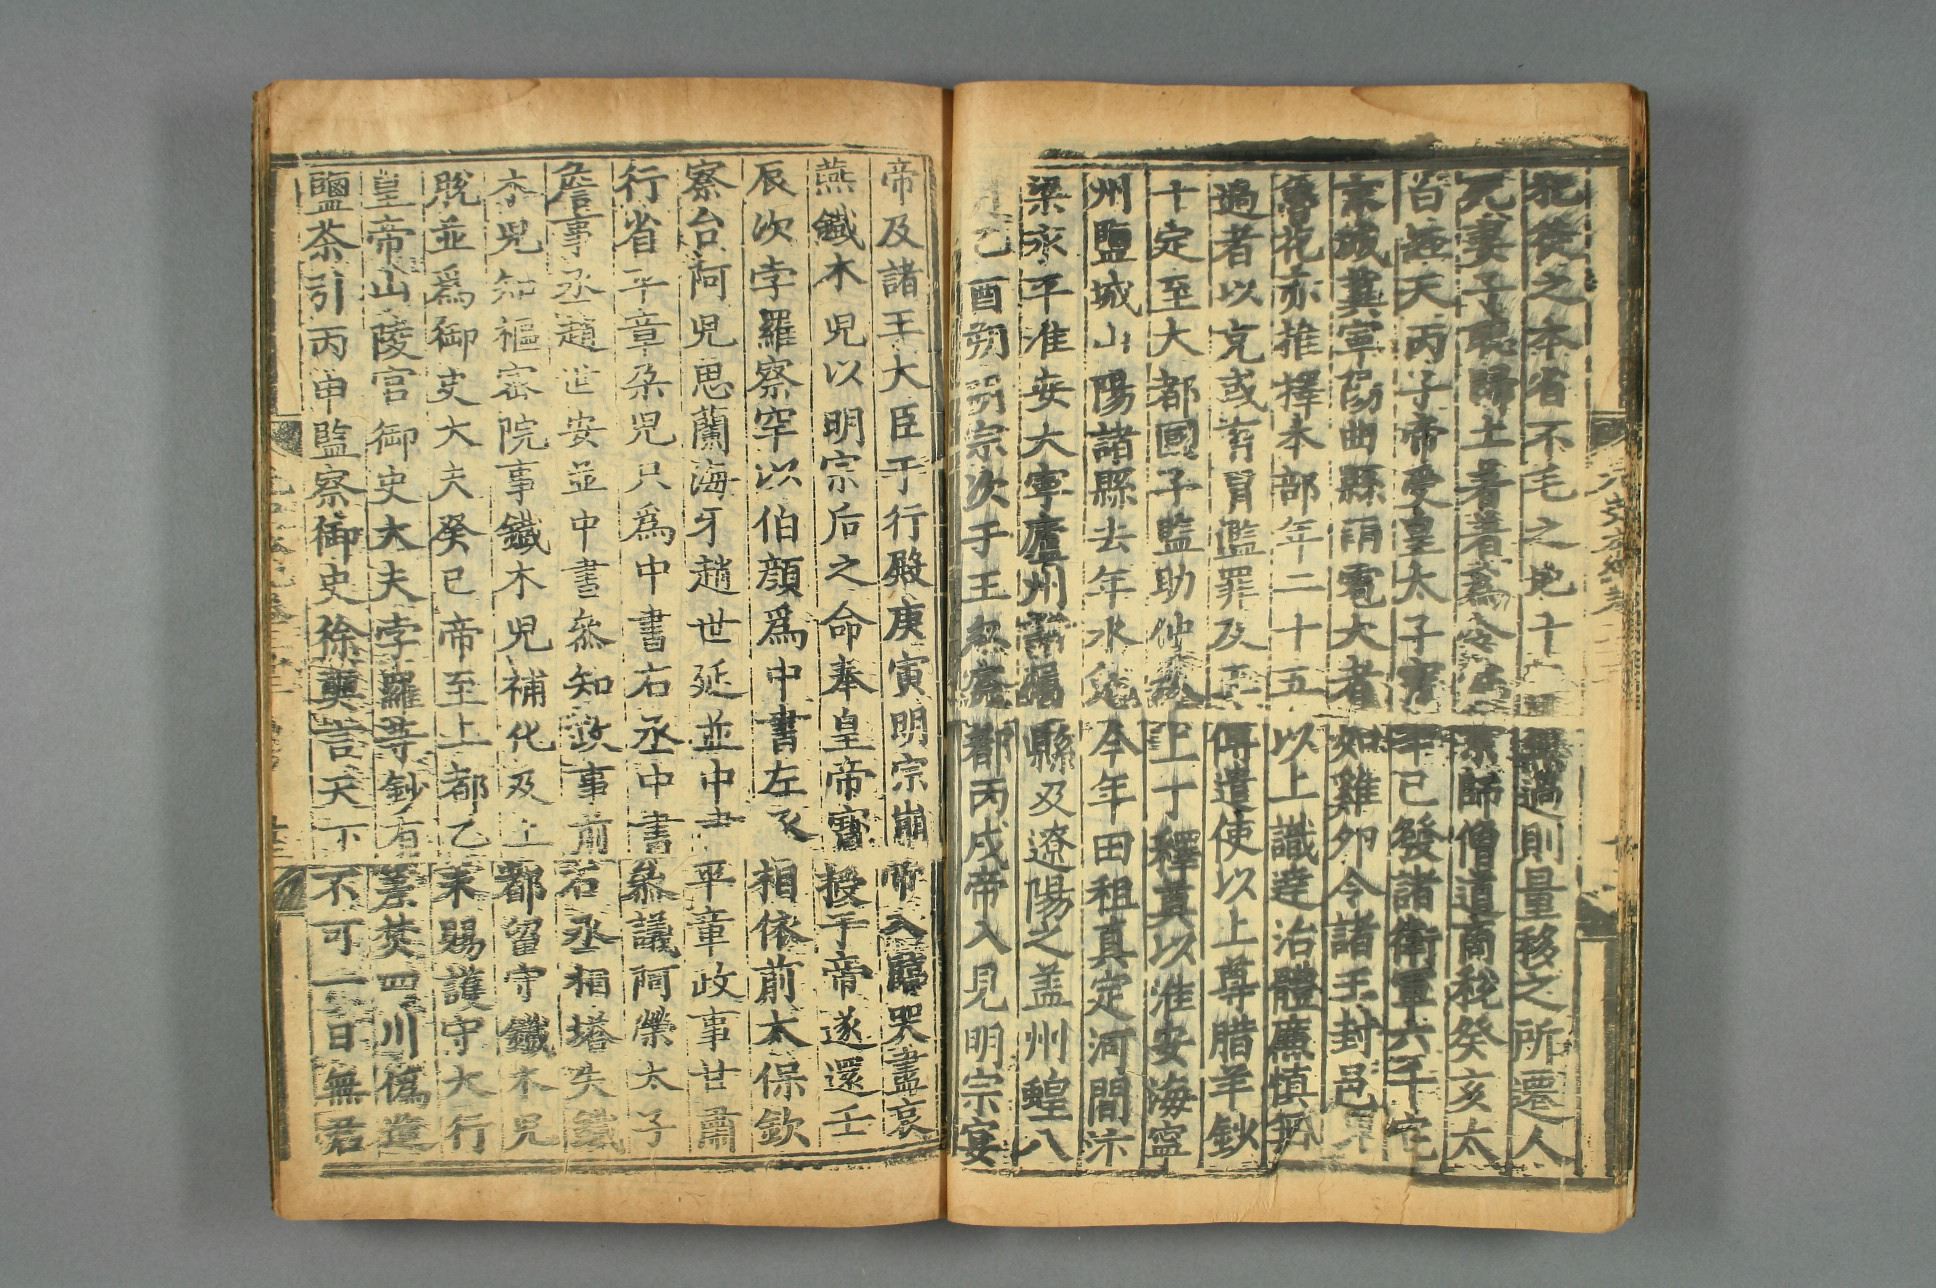 犯徙之本省不毛之地十年無過則量移之所遷人
死妻子聽歸土著著爲令京師僧道商稅癸亥太
白經天丙子帝受皇太子寶辛巳發諸衛軍六千完
京城冀寧陽曲縣雨雹大者如雞卵令諸王封邑達
魯花赤推擇本部年二十五以上識達治體廉慎無
過者以充或有冒濫罪及王傅遣使以上尊腊羊鈔
十定至大都國子監助仲秋上丁釋奠以淮安海寧
州鹽城山陽諸縣去年水免今年田租真定河間汴
梁永平淮安大寧廬州諸屬縣及遼陽之蓋州蝗八
月乙酉朔明宗次于王忽察都丙戌帝入見明宗宴
帝及諸王大臣于行殿庚寅明宗崩帝入臨哭盡哀
燕鐵木兒以明宗后之命奉皇帝寶授于帝遂還壬
辰次孛羅察罕以伯顏爲中書左丞相依前太保欽
察台阿兒思蘭海牙趙世延並中書平章政事甘肅
行省平章朶兒只爲中書右丞中書參議阿榮太子
詹事丞趙世安並中書參知政事前右丞相塔失鐵
木兒知樞密院事鐵木兒補化及上都留守鐵木兒
脫並爲御史大夫癸巳帝至上都乙未賜護守大行
皇帝山陵官御史大夫孛羅等鈔有差焚四川偽造
鹽茶引丙申監察御史徐奭言天下不可一日無君